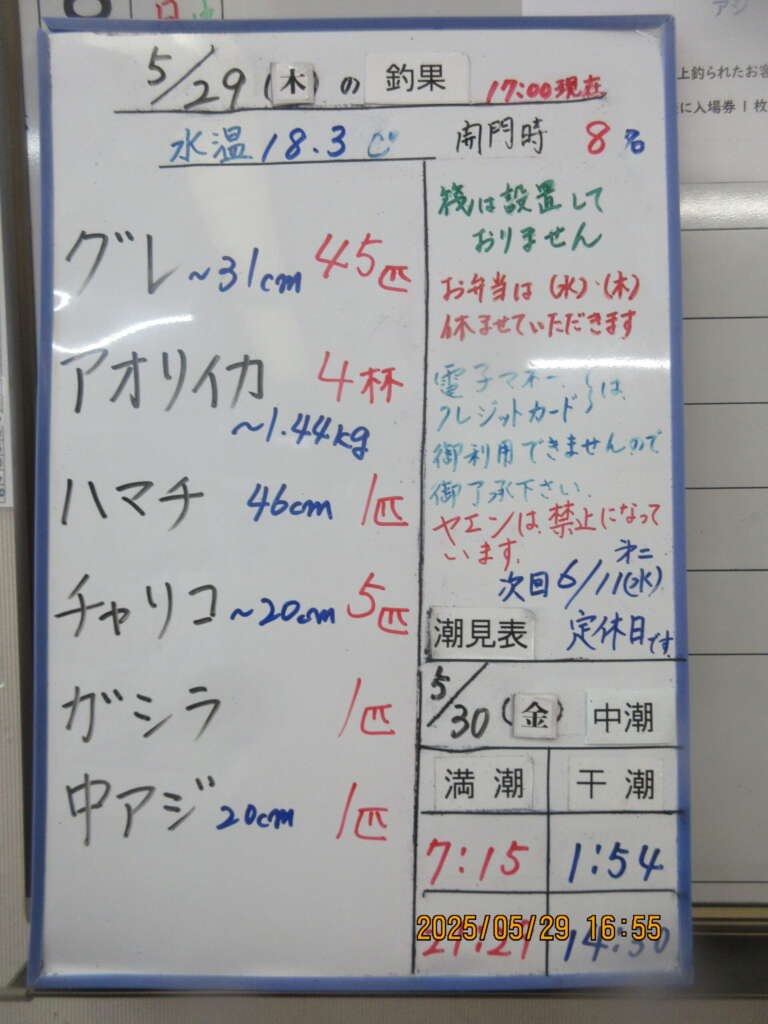 5/29(木)の 釣果 17:00現在
水温18.3℃ 開門時 8名
グレ~31cm 45匹
アオリイカ 4杯
~1.44kg
ハマチ 46cm 1匹
チャリコ~20cm 5匹
ガシラ 1匹
中アジ20cm 1匹
筏は設置して
おりません
お弁当は(水)・(木)
休ませていただきます
電子マネー、
クレジットカード}は、
御利用できませんので
御了承下さい.
ヤエンは、禁止になって
います。
次回6/11(水)
第二
定休日です。
潮見表
5/30(金) 中潮
満潮 干潮
7:15 1:54
21:27 14:30
2025/05/29 16:55
アジ
上釣られたお客
に入場券1枚